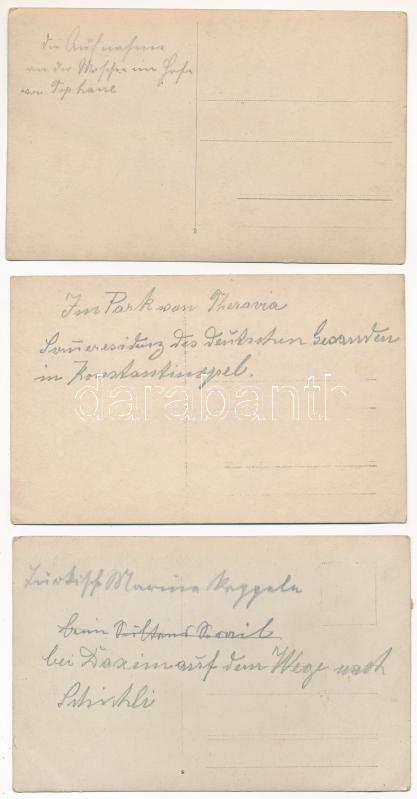 die Aufnahme
an der Moschee im Hofe
von Tophane
Im Park von Theravia
Someresidenz des deutschen Gesanden
in Konstantinopel.
darabanth
Türkisch Marine Kappele
beim Sultans Serail
bei Daxim auf dem Wege nach
Schichli